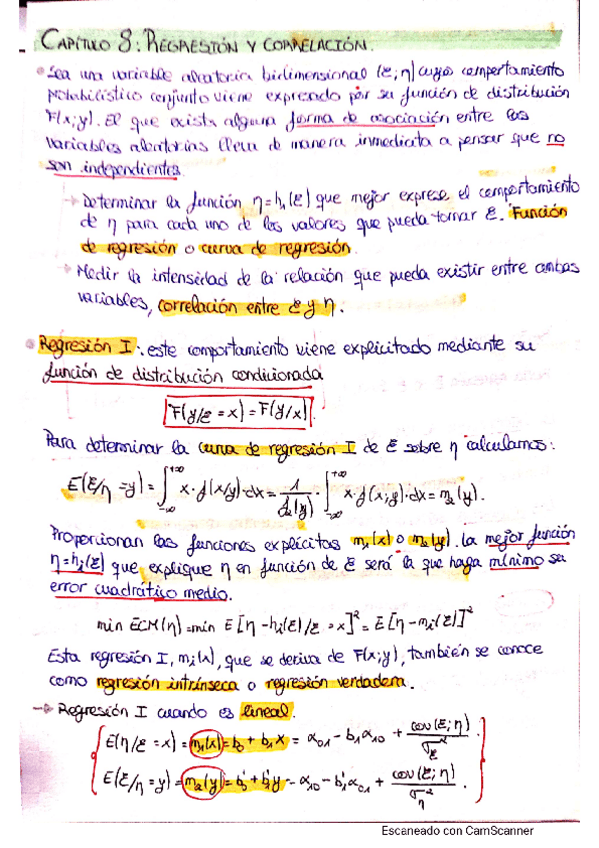 CAPÍTULO 8: REGRESIÓN Y CORRELACIÓN.
• Sea una variable aleatoria bidimensional (ξ; η) cuyo comportamiento
probabilístico conjunto viene expresado por su función de distribución
F(x;y). El que exista alguna forma de asociación entre las
variables aleatorias lleva de manera inmediata a pensar que no
son independientes.
→ Determinar la función η=h₁(ξ) que mejor exprese el comportamiento
de η para cada uno de los valores que pueda tomar ξ. Función
de regresión o curva de regresión.
→ Medir la intensidad de la relación que pueda existir entre ambas
variables, correlación entre ξ y η.
• Regresión I: este comportamiento viene explicitado mediante su
función de distribución condicionada
F(y/ξ = x) = F(y/x).
Para determinar la curva de regresión I de ξ sobre η calculamos:
E(ξ/η =y) = ∫_{-∞}^{+∞} x·f(x/y)·dx = 1/f₂(y) · ∫_{-∞}^{+∞} x·f(x;y)·dx = m₂(y).
Proporcionan las funciones explícitas m₁(x) o m₂(y). La mejor función
η=h₁(ξ) que explique η en función de ξ será la que haga mínimo su
error cuadrático medio.
min ECM(η) = min E[η -h₁(ξ)/ξ = x]² = E[η -m₁(ξ)]²
Esta regresión I, m₁(x), que se deriva de F(x;y), también se conoce
como regresión intrínseca o regresión verdadera.
→ Regresión I cuando es lineal.
E(η/ξ = x) = m₁(x) = b₀ + b₁x = α₀₁ - b₁α₁₀ + cov(ξ;η)/σ_ξ² .
E(ξ/η = y) = m₂(y) = b₀' + b₁'y = α₁₀ - b₁'α₀₁ + cov(ξ;η)/σ_η² .
Escaneado con CamScanner